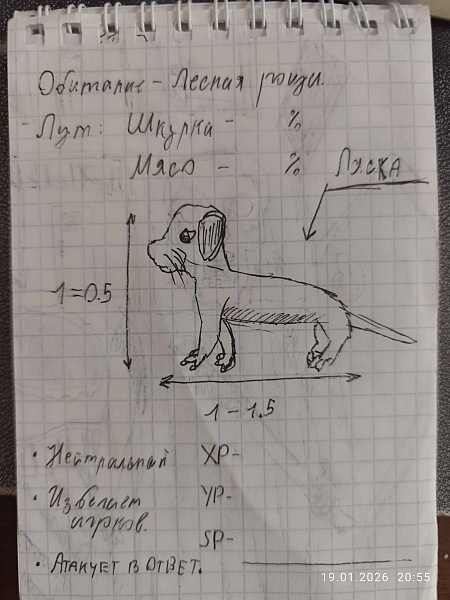 Обитание - Лесная рощи.
- Лут: Шкурка - %
Мясо - %
Ласка
1=0.5
1-1.5
• Нейтральный
XP-
• Избегает
игрков.
УР-
SP-
• Атакует в ответ.
19.01.2026 20:55